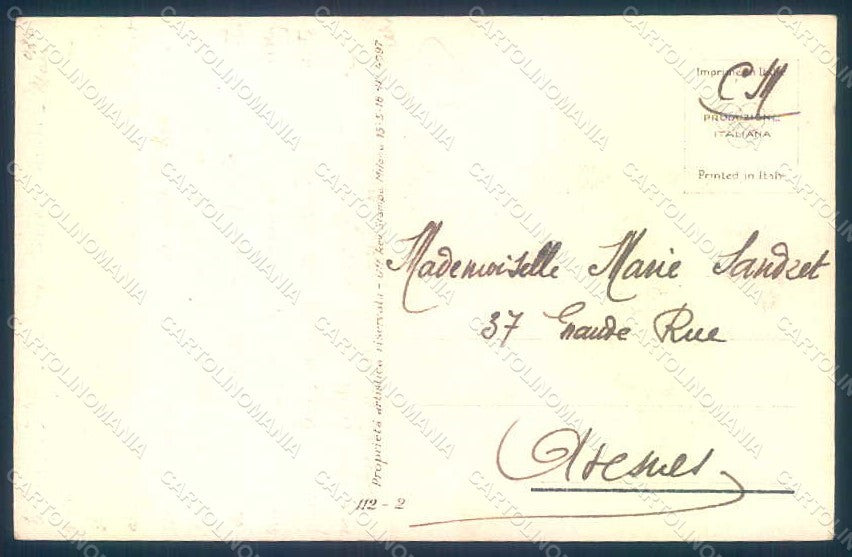 Imprimé en Italie
CM
PRODUZIONE
ITALIANA
Printed in Italy
Mademoiselle Marie Sandret
37 Grande Rue
Avesnes
Proprietà artistica riservata - Rev. Stampa Milano 15-3-18
112 - 2
CARTOLINOMANIA